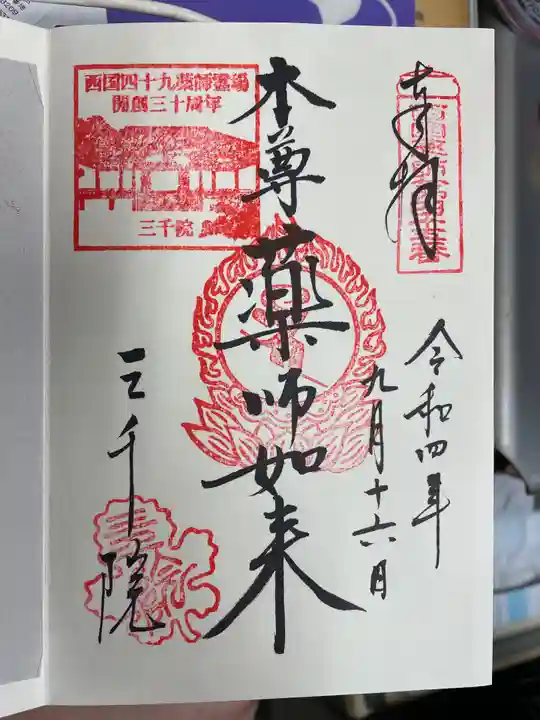 奉拝
令和四年
九月十六日
本尊
薬師如来
西国四十九薬師霊場
開創三十周年
三千院
三千院